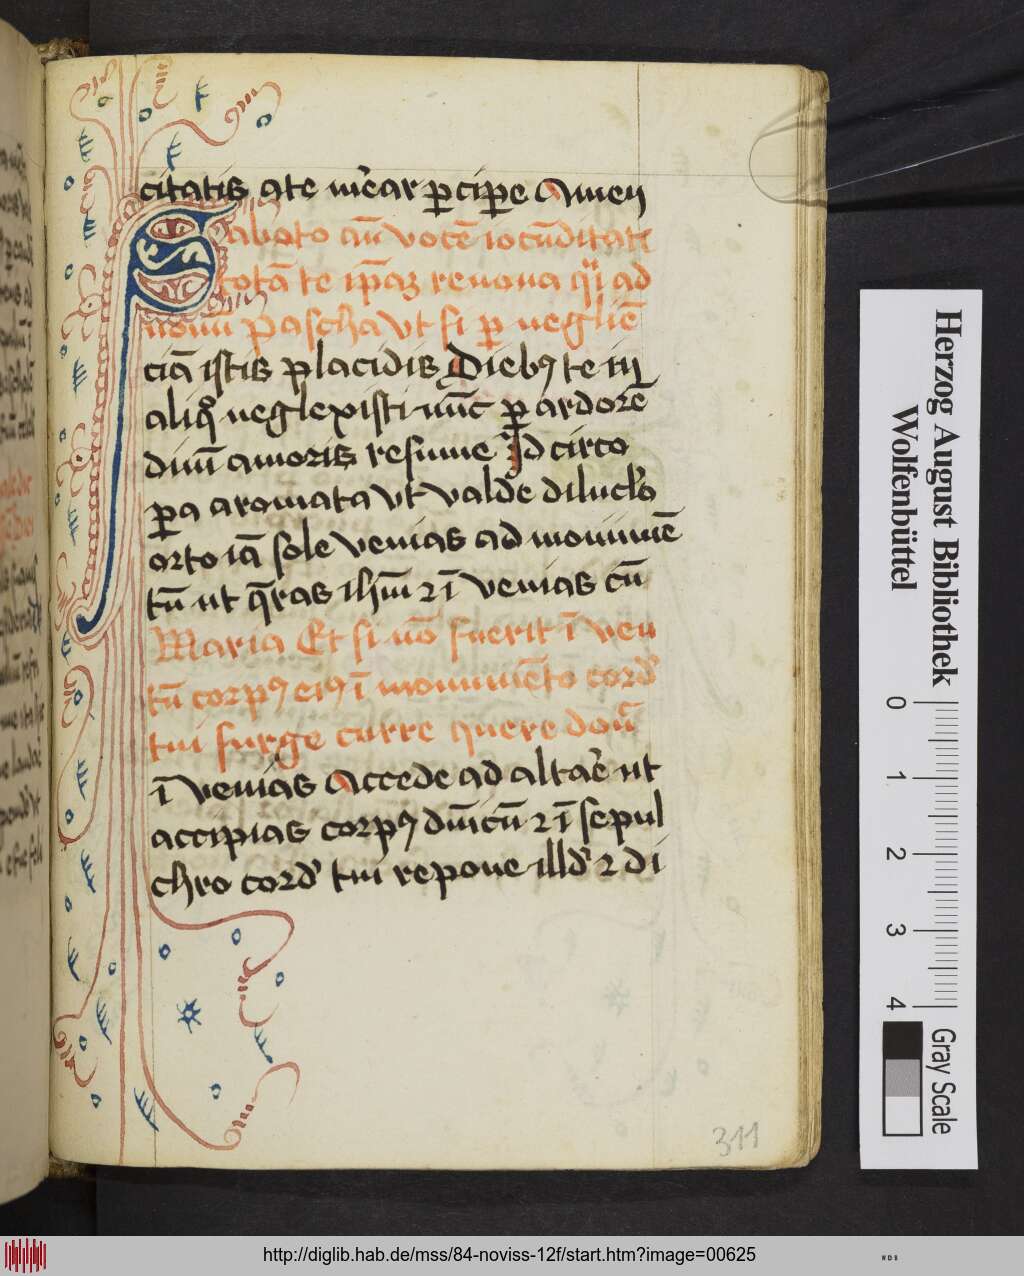 citatis ate mēar ꝑcipe Amen
Sabōto aū vocē iocūditati
totā te ip̄aʒ renoua qͥ ad
nouū pascha vt si ꝑ negliē
ciā istis placidis diebꝯ te in
aliqͦ neglexisti nūc ꝑ ardorē
diuī amoris resume Id circo
ꝑa aromata vt valde diluclͦo
orto iā sole venias ad monimē
tū ut q̄ras ihm̄ ⁊ ī venias cū
Maria Et si nō fuerit ī ven
tū corpꝯ eiꝯ ī monumēto cordꝭ
tui surge curre quere doūꝫ
ī venias Accede ad altar̄e ut
accipias corpꝯ dn̄icū ⁊ ī sepul
chro cordꝭ tui repone illd̓ ⁊ di
311
Herzog August Bibliothek
Wolfenbüttel
0 1 2 3 4
Gray Scale
http://diglib.hab.de/mss/84-noviss-12f/start.htm?image=00625